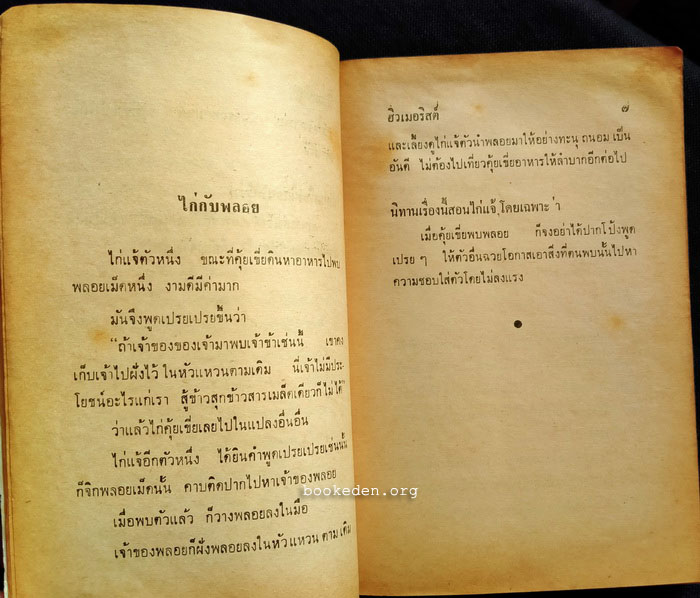 ไก่กับพลอย
ไก่แจ้ตัวหนึ่ง ขณะที่คุ้ยเขี่ยดินหาอาหารไปพบ
พลอยเม็ดหนึ่ง งามดีมีค่ามาก
มันจึงพูดเปรยเปรยขึ้นว่า
“ถ้าเจ้าของของเจ้ามาพบเจ้าเข้าเช่นนี้ เขาคง
เก็บเจ้าไปฝังไว้ ในหัวแหวนตามเดิม นี่เจ้าไม่มีประ-
โยชน์อะไรแก่เรา สู้ข้าวสุกข้าวสารเมล็ดเดียวก็ไม่ได้”
ว่าแล้วไก่คุ้ยเขี่ยเลยไปในแปลงอื่นอื่น
ไก่แจ้อีกตัวหนึ่ง ได้ยินคำพูดเปรยเปรยเช่นนั้น
ก็จิกพลอยเม็ดนั้น คาบติดปากไปหาเจ้าของพลอย
เมื่อพบตัวแล้ว ก็วางพลอยลงในมือ
เจ้าของพลอยก็ฝังพลอยลงในหัวแหวน ตามเดิม
ฮิวเมอริสต์ ๗
และเลี้ยงดูไก่แจ้ตัวนำพลอยมาให้อย่างทะนุ ถนอม เป็น
อันดี ไม่ต้องไปเที่ยวคุ้ยเขี่ยอาหารให้ลำบากอีกต่อไป
นิทานเรื่องนี้สอนไก่แจ้, โดยเฉพาะ ว่า
เมื่อคุ้ยเขี่ยพบพลอย ก็จงอย่าได้ปากโป้งพูด
เปรย ๆ ให้ตัวอื่นฉวยโอกาสเอาสิ่งที่ตนพบนั้นไปหา
ความชอบใส่ตัวโดยไม่ลงแรง
bookeden.org